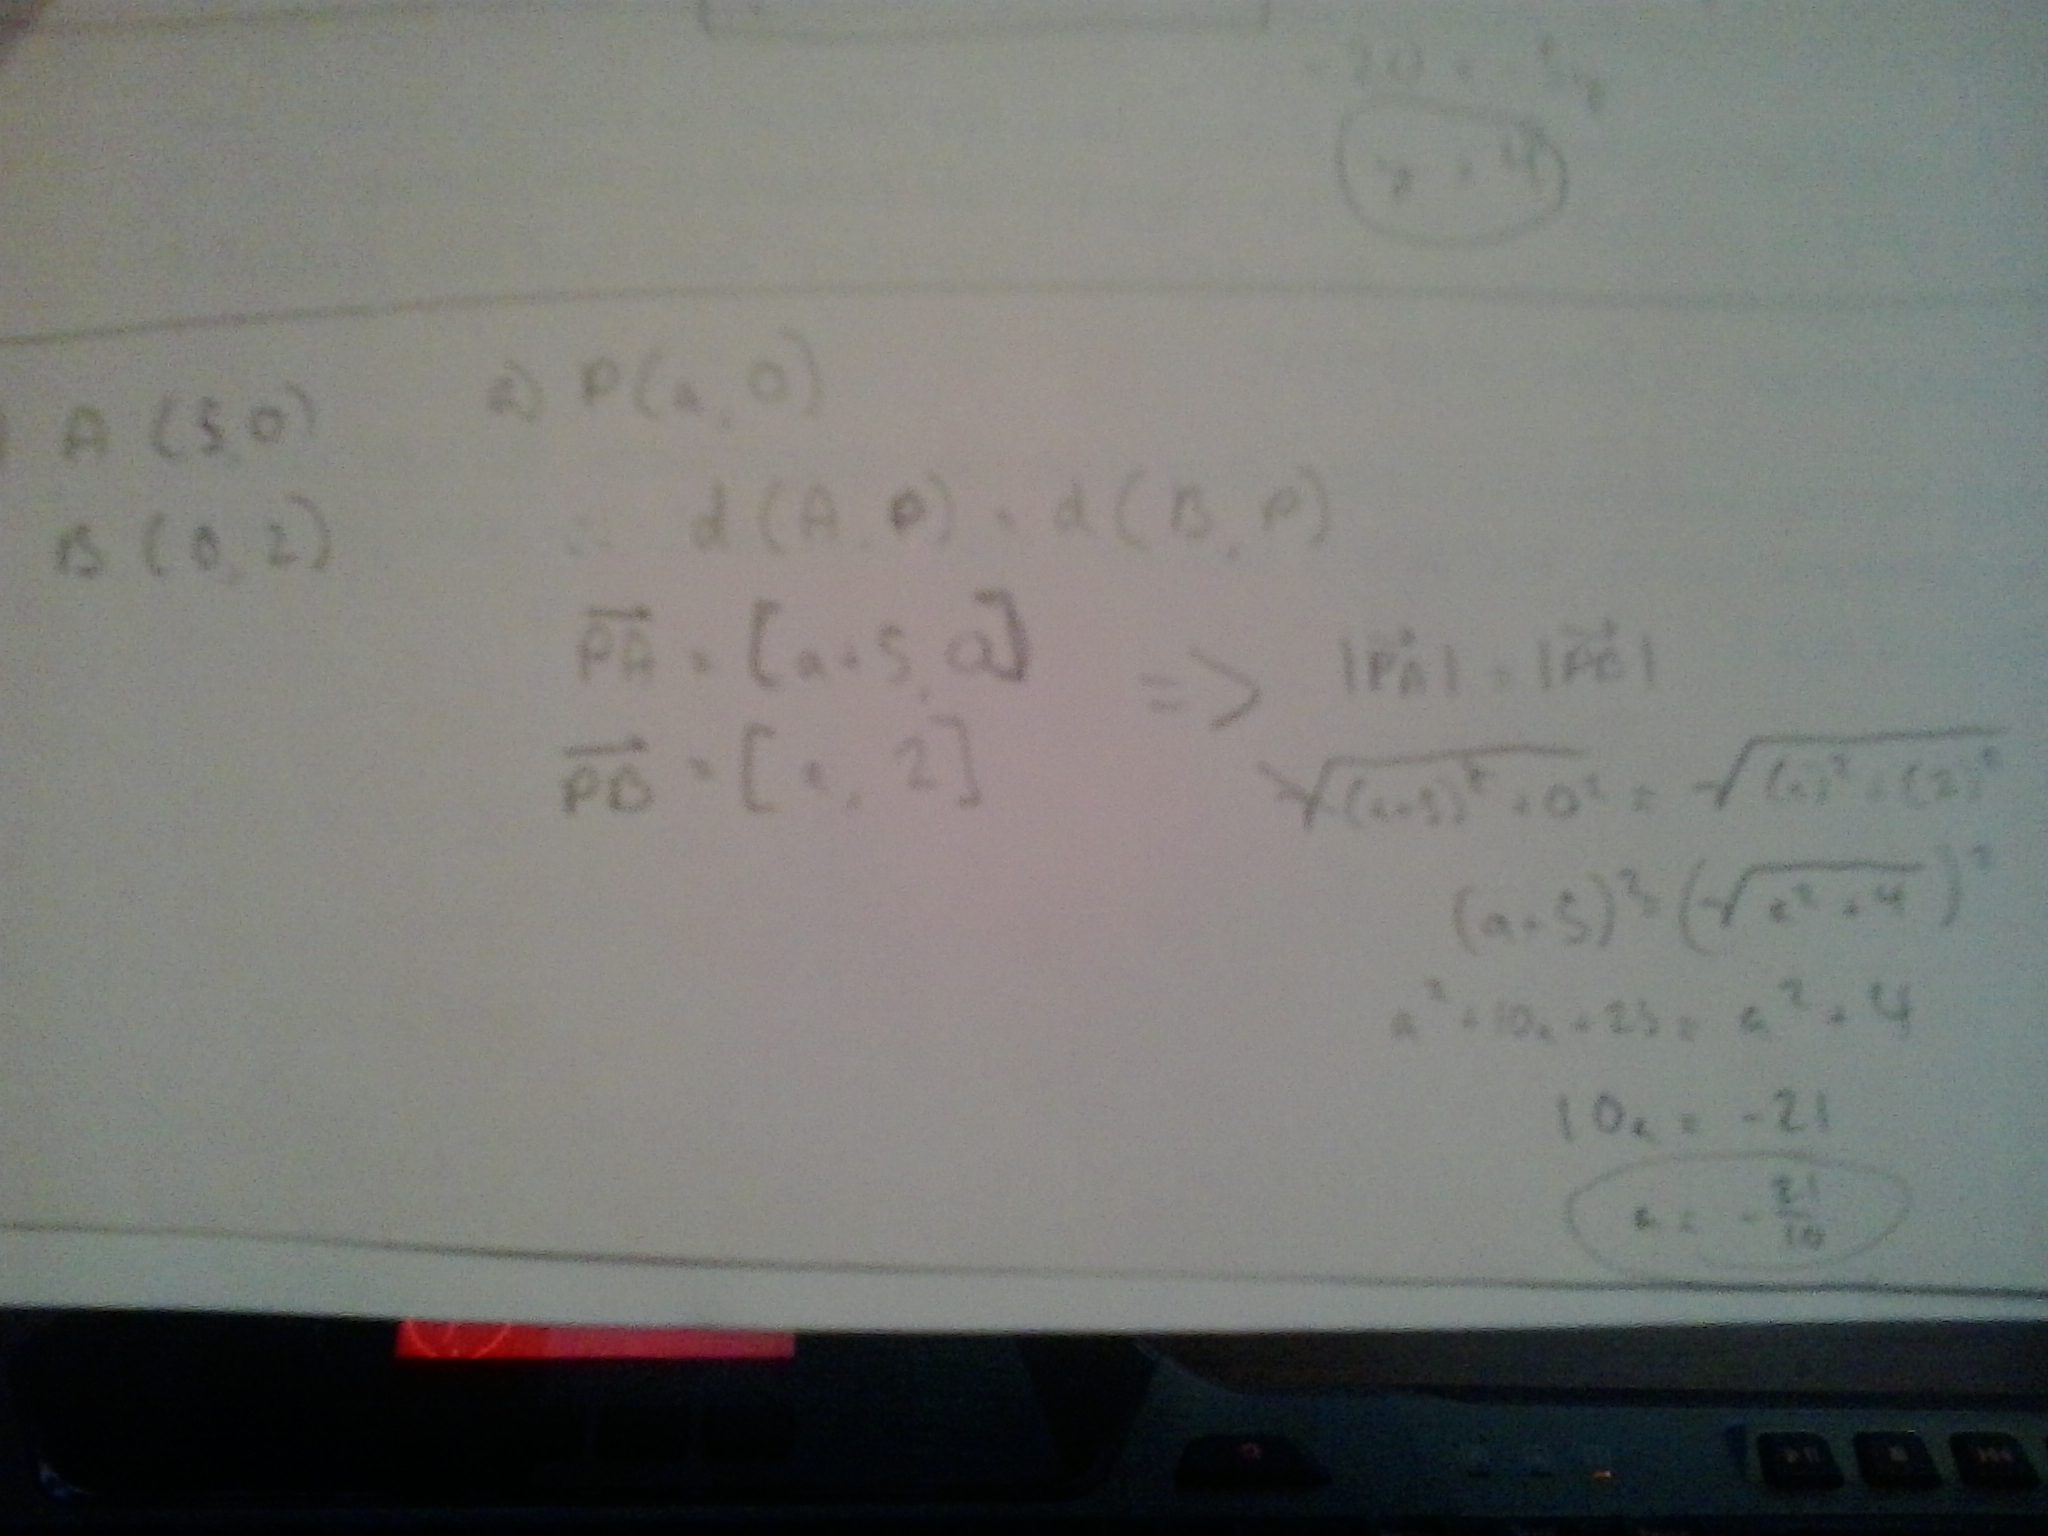 -20 = -5y
y = 4
A (5,0)
B (0,2)
a) P(a,0)
∴ d(A,P) = d(B,P)
PA = [a+5, 0]
PB = [a, 2]
=> |PA| = |PB|
√(a+5)² + 0² = √(a)² + (2)²
(a+5)² = (√a² + 4)²
a² + 10a + 25 = a² + 4
10a = -21
a = -21/10